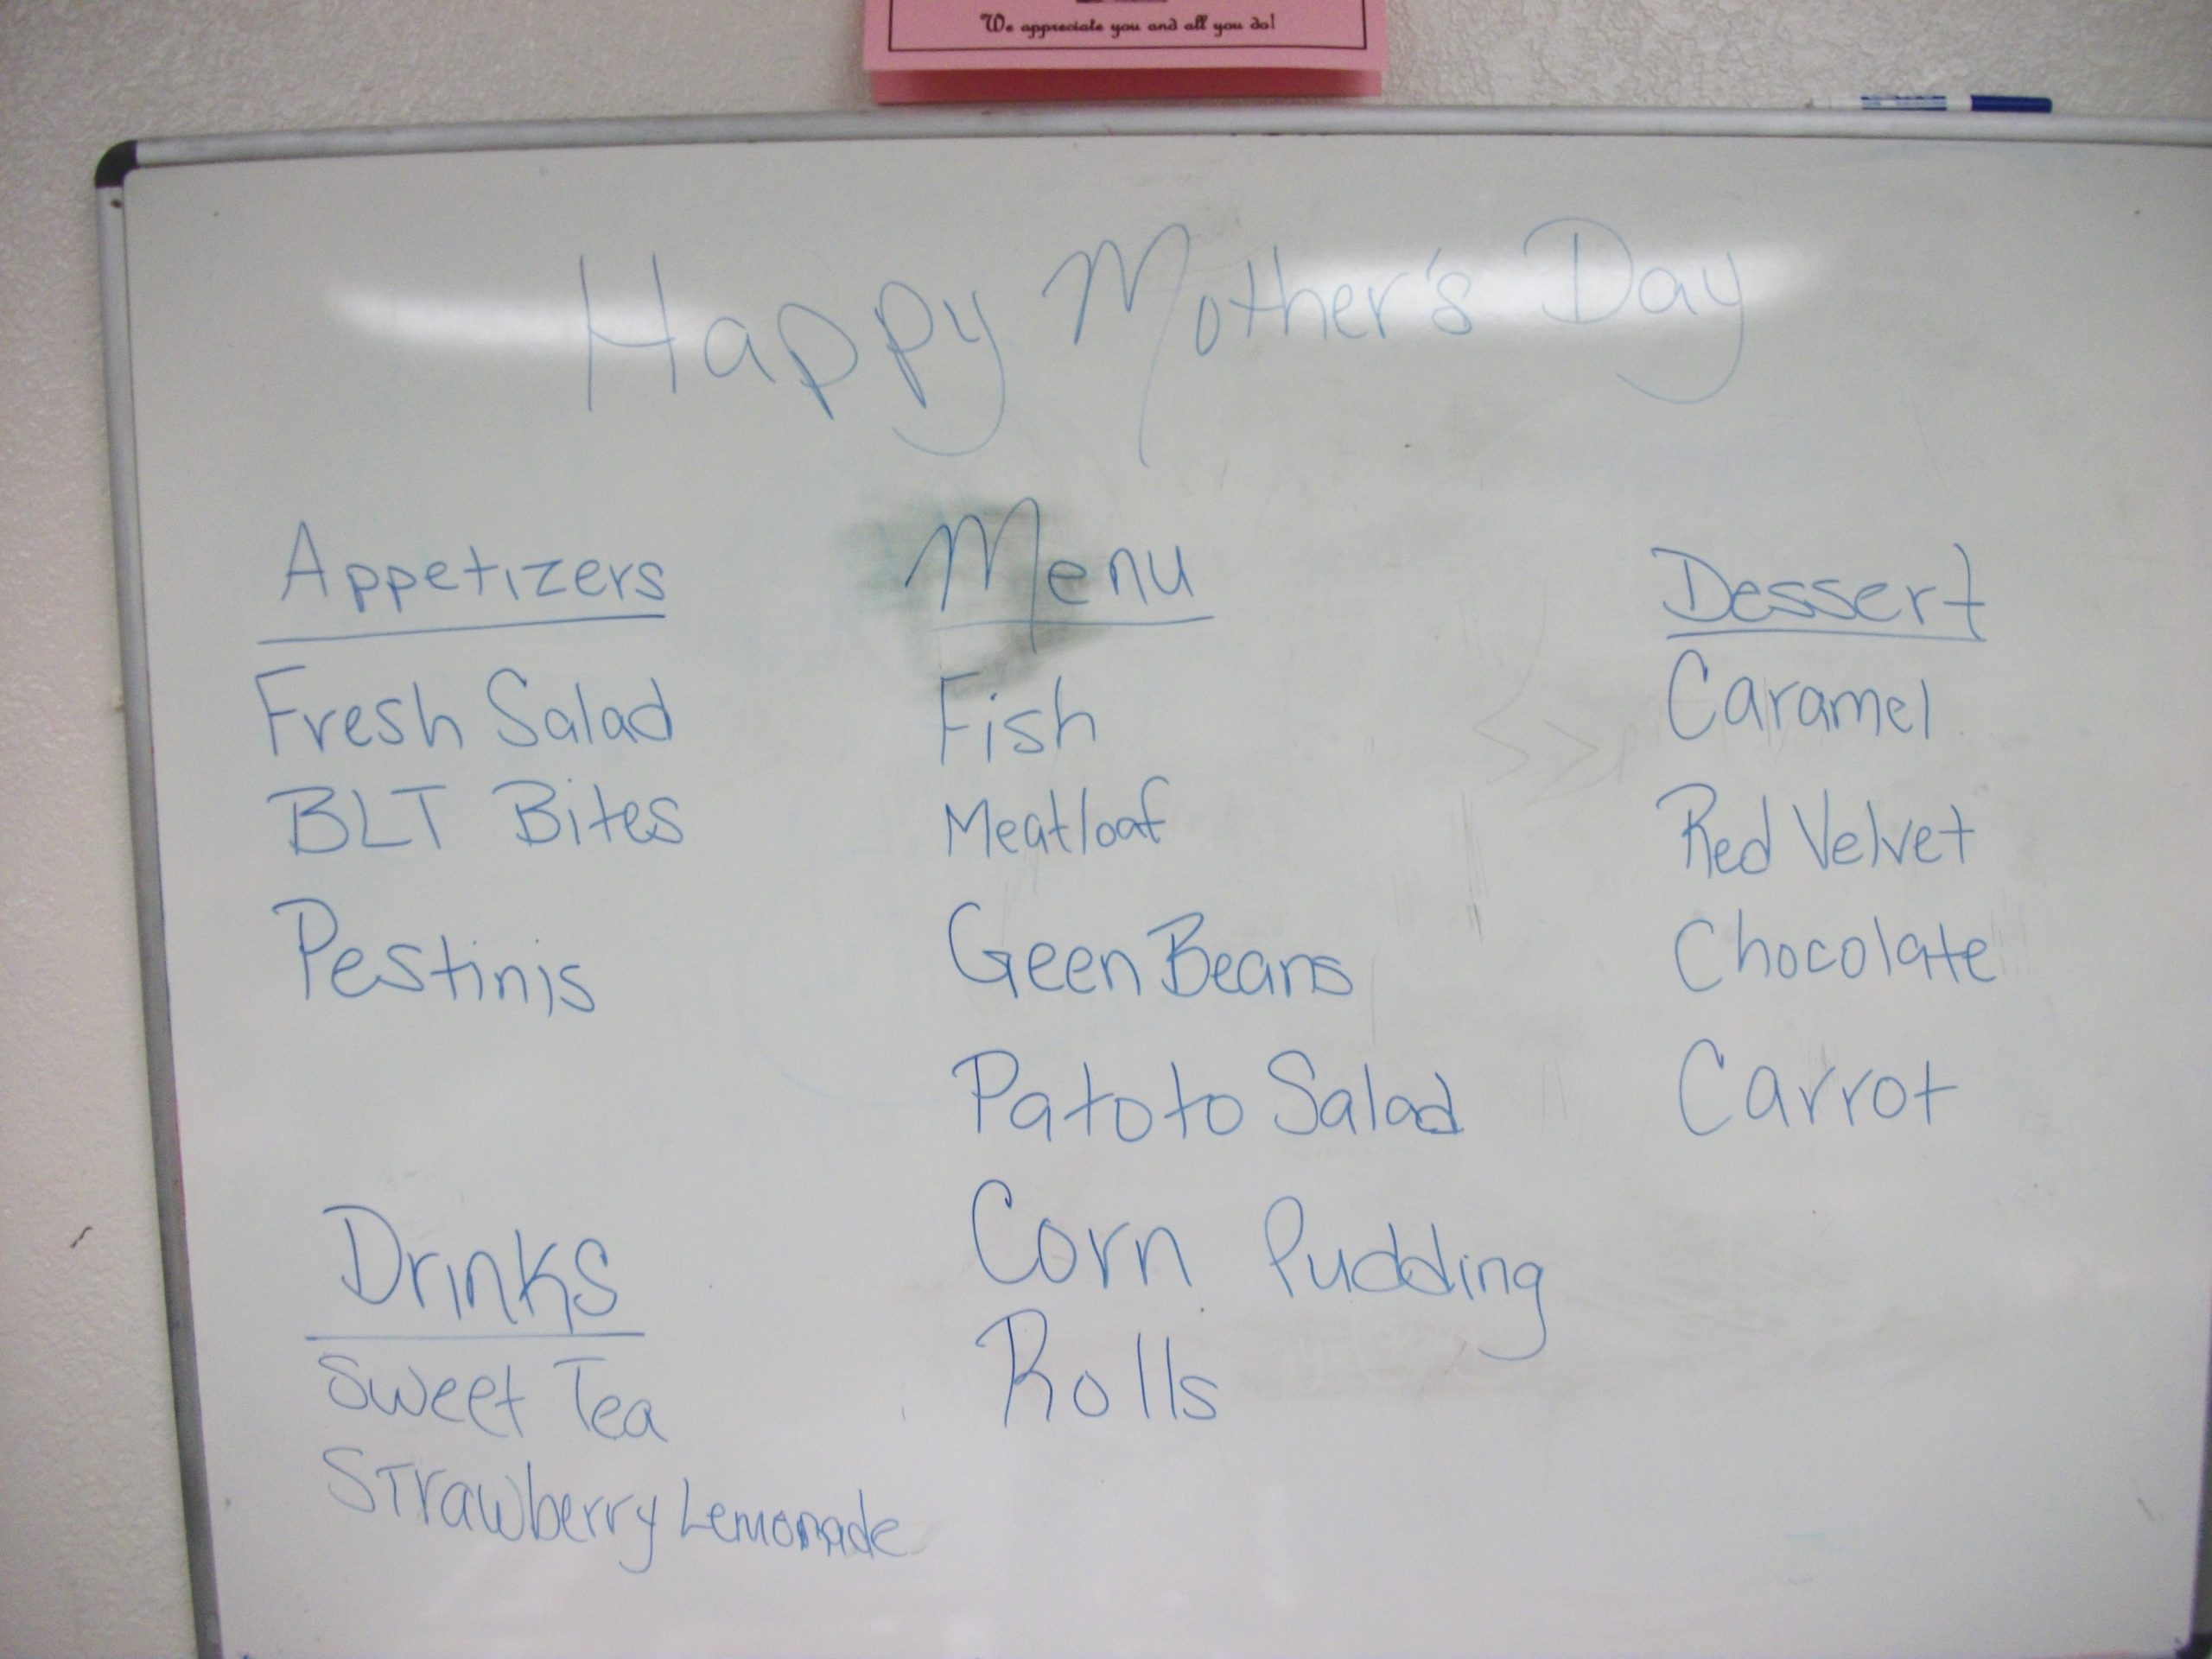 We appreciate you and all you do!
Happy Mother's Day
Appetizers
Fresh Salad
BLT Bites
Pestinis
Drinks
Sweet Tea
Strawberry Lemonade
Menu
Fish
Meatloaf
Geen Beans
Patoto Salad
Corn Pudding
Rolls
Dessert
Caramel
Red Velvet
Chocolate
Carrot